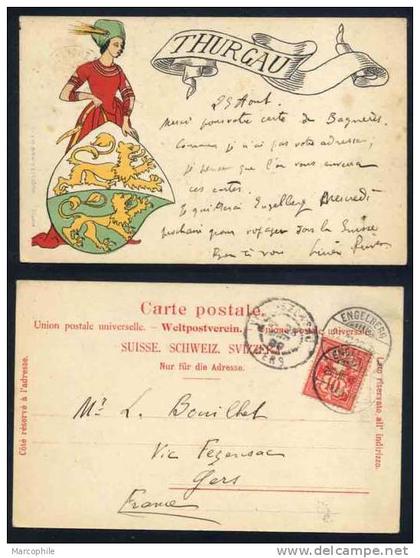 THURGAU
29 Aout.
Merci pour votre carte de Bagnères.
Comme je n'ai pas votre adresse,
je pense que l'on vous enverra
ces cartes.
Je quitterai Engelberg Mercredi
prochain pour voyager dans la Suisse
Bien à vous
Carte postale.
Union postale universelle. — Weltpostverein. — Unione postale universale
SUISSE. SCHWEIZ. SVIZZERA.
Nur für die Adresse.
Côté réservé à l'adresse.
Lato riservato all' indirizzo.
ENGELBERG
10
Mr L. Bouilhet
Vic Fezensac
Gers
France
© Marcophile
delcampe.net